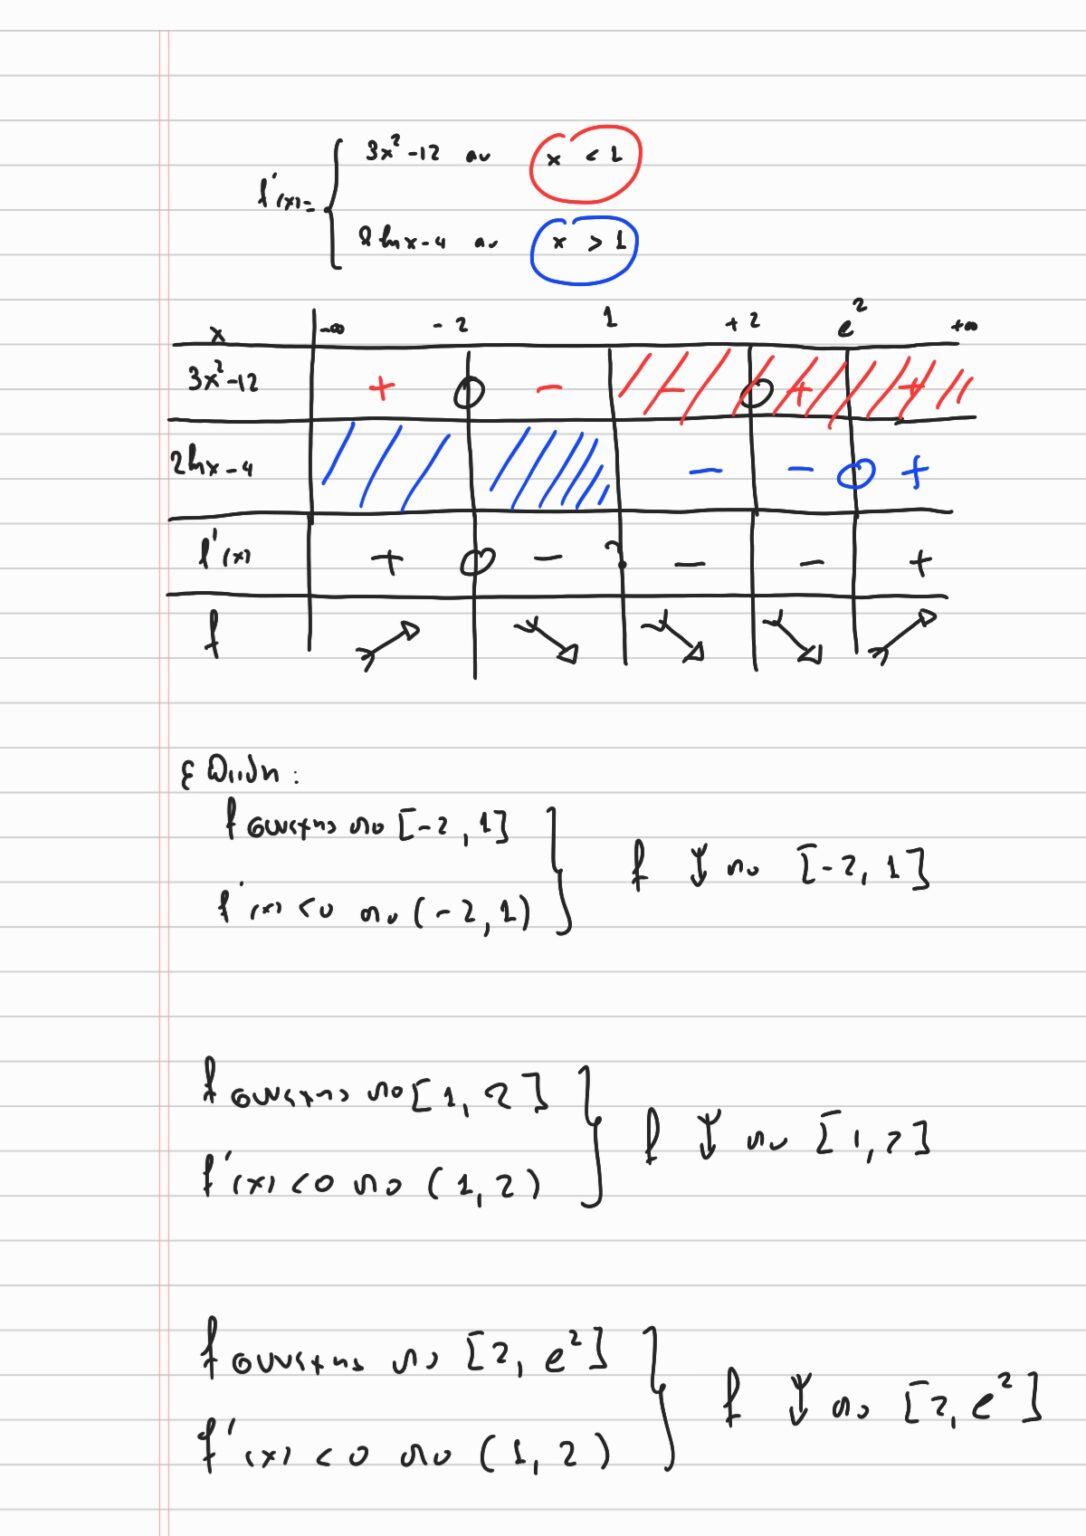 f'(x)= { 3x²-12 αν x < 1
2lnx-4 αν x > 1
x -∞ -2 1 +2 e² +∞
3x²-12 + 0 - - 0 + +
2lnx-4 - - 0 +
f'(x) + 0 - - - +
f ↗ ↘ ↘ ↘ ↗
f συνεχης στο [-2, 1]
f'(x) <0 στο (-2, 1)
} f ↓ στο [-2, 1]
f συνεχης στο [1, 2]
f'(x) <0 στο (1, 2)
} f ↓ στο [1, 2]
f συνεχης στο [2, e²]
f'(x) <0 στο (1, 2)
} f ↓ στο [2, e²]